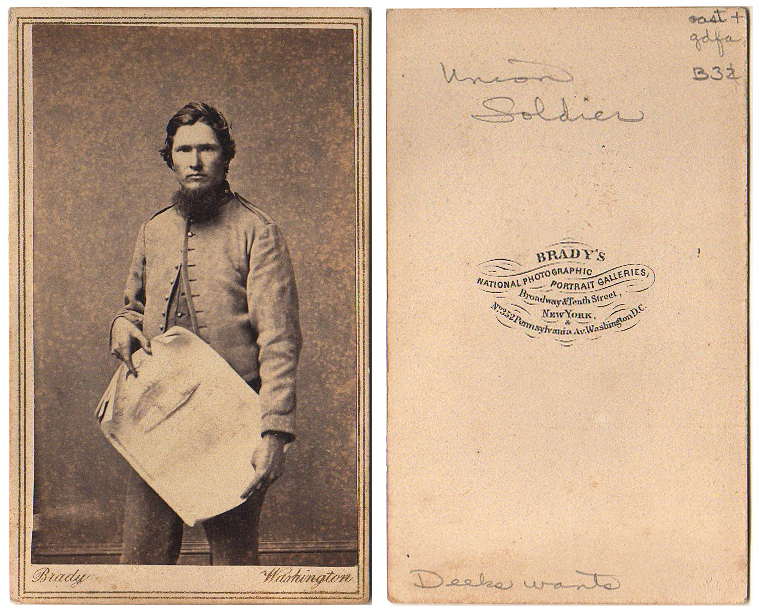 Brady Washington
Union
Soldier
B32
BRADY'S
NATIONAL PHOTOGRAPHIC
PORTRAIT GALLERIES,
Broadway & Tenth Street,
NEW YORK,
&
No. 352 Pennsylvania Av. Washington D.C.
Deeks wants